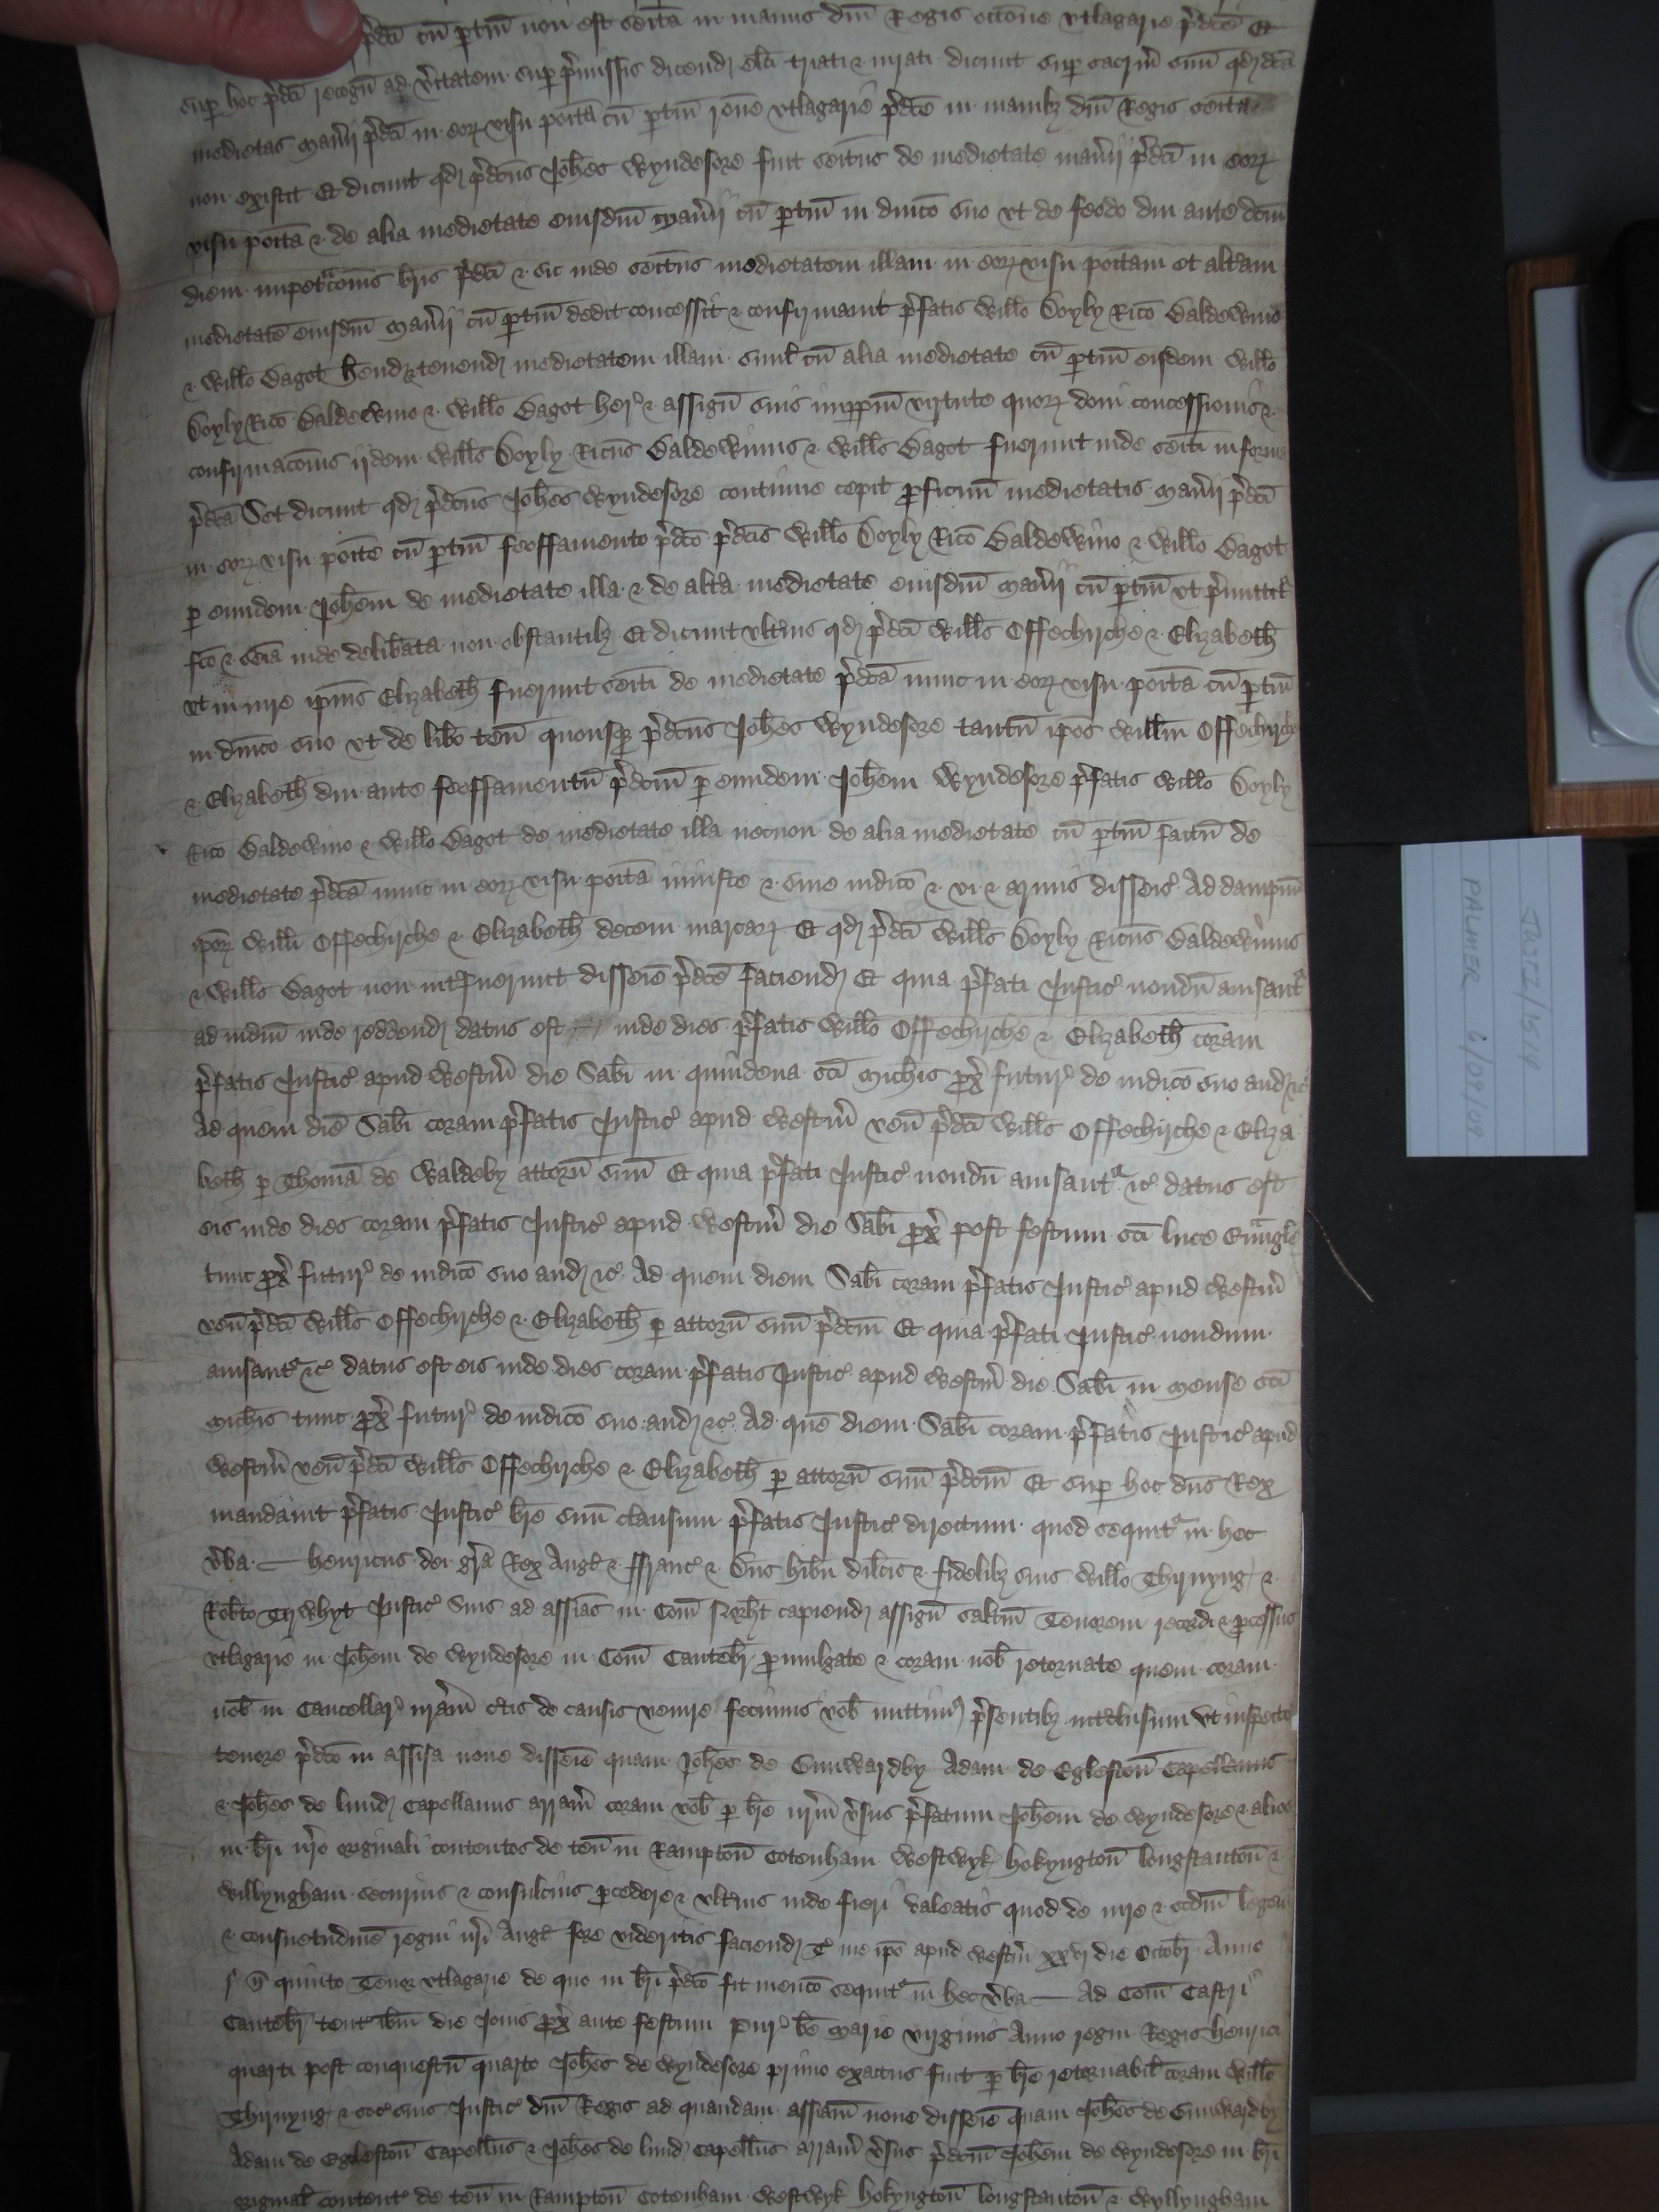 p'dci cu ptin non est seita in manus dni Regis occone utlagarie p'dce Et
sup hoc p'dci recogn ad v'itatem sup p'missis dicend elcti triati & iurati dicunt sup sacrm suu qd dca
medietas Man'ii p'dci in eor visu posita cu ptin rone utlagarie p'dce in manibz dni Regis seita
non existit Et dicunt qd p'dcus Johes Wyndesore fuit seitus de medietate man'ii p'dci in eor
visu poita & de alia medietate eiusdm Man'ii cu ptin in dnico suo ut de feodo diu ante dcm
diem impetracois bris p'dci & sic inde seitus medietatem illam in eor visu poitam et alteram
medietate eiusdm Man'ii cu ptin dedit concessit & confirmauit p'fatis Willo Doyly Rico Baldewino
& Willo Bagot hend & tenend medietatem illam simul cu alia medietate cu ptin eisdem Willo
Doyly Rico Baldewino & Willo Bagot her' & assign suis imppm virtute quor doni concessionis &
confirmacois iidem Wills Doyly Ricus Baldewinus & Wills Bagot fuerunt inde seiti in forma
p'dca Set dicunt qd p'dcus Johes Wyndesore continue cepit proficuu medietatis Man'ii p'dci
in eor visu poite cu ptin feoffamento p'dco p'dcis Willo Doyly Rico Baldewino & Willo Bagot
p eundem Johem de medietate illa & de alta medietate eiusdm Man'ii cu ptin ut p'mittit'
fco & seia inde delibata non obstantibz Et dicunt ult'ius qd p'dci Wills Offechirche & Elizabeth
ut in iure ipius Elizabeth fuerunt seiti de medietate p'dca nunc in eor visu poita cu ptin
in dnico suo ut de libo ten quousq p'dcus Johes Wyndesore tantu ipos Willm Offechirche
& Elizabeth diu ante feoffamentu p'dcm p eundem Johem Wyndesore p'fatis Willo Doyly
Rico Baldewino & Willo Bagot de medietate illa necnon de alia medietate cu ptin factu de
medietate p'dca nunc in eor visu poita iniuste & sine iudico & vi & armis disseis' Ad dampnu
ipor Willi Offechirche & Elizabeth decem marcar Et qd p'dci Wills Doyly Ricus Baldewinus
& Wills Bagot non int'fuerunt disseie p'dce faciend Et quia p'fati Justic' nondu auisant'
ad iudm inde reddend datus est inde dies p'fatis Willo Offechirche & Elizabeth coram
p'fatis Justic' apud Westm die Sabi in quindena sci Michis prox futur' de iudico suo aud &c'
Ad quem die Sabi coram p'fatis Justic' apud Westm ven p'dci Wills Offechirche & Eliza
beth p Thoma de Waldeby attorn suu Et quia p'fati Justic' nondu auisant' &c' datus est
eis inde dies coram p'fatis Justic' apud Westm die Sabi prox post festum sci luce Euangle
tunc prox futur' de iudico suo aud &c' Ad quem diem Sabi coram p'fatis Justic' apud Westm
ven p'dci Wills Offechirche & Elizabeth p attorn suu p'dcm Et quia p'fati Justic' nondum
auisant' &c' datus est eis inde dies coram p'fatis Justic' apud Westm die Sabi in Mense sci
Michis tunc prox futur' de iudico suo aud &c' Ad que diem Sabi coram p'fatis Justic' apud
Westm ven p'dci Wills Offechirche & Elizabeth p attorn suu p'dcm Et sup hoc dns Rex
mandauit p'fatis Justic' bre suu clausum p'fatis Justic' directum quod sequit' in hec
v'ba — Henricus dei gra Rex Angl & ffranc & Dns hibn dilcis & fidelibz suis Willo Thirnyng &
Robto Tirwhyt Justic' suis ad assias in Com capiend assign saltm Tenorem recordi & pcessus
utlagarie in Johem de Wyndesore in Com Cantebr promulgate & coram nob retornate quem coram
nob in Cancellar' nram ctis de causis venire fecimus vob mittim' p'sentibz int'clusum Ut inspecto
tenore p'dco in assisa noue disseie quam Johes de Gunwardby Adam de Egleston Capellanus
& Johes de lund Capellanus arram coram vob p bre nrm v'sus p'fatum Johem de Wyndesore & alios
in bri nro originali contentos de ten in Rampton Cotenham Westwyk hokyngton longstanton &
Willyngham securius & consulcius pcedere & ult'ius inde fieri valeatis quod de iure & scdm legem
& consuetudine regni nri Angl fore videritis faciend T' me ipo apud Westm xxvj die Octobr Anno
r' n' quinto Tenor utlagarie de quo in bri p'dco fit menco sequit' in hec v'ba — Ad Com Castri
Cantebr tent' ibm die Jouis prox ante festum Pur' be Marie virginis Anno regni Regis henrici
quarti post conquestu quarto Johes de Wyndesore primo exactus fuit p bre retornabil coram Willo
Thirnyng & soc' suis Justic' dni Regis ad quandam assiam noue disseie quam Johes de Gunwardby
Adam de Egleston Capellus & Johes de lund Capellus arram v'sus p'dcm Johem de Wyndesore in bri
original content' de ten in Rampton Cotenham Westwyk hokyngton longstanton & Wyllyngham
JUST 2/1514
PALMER 6/09/02